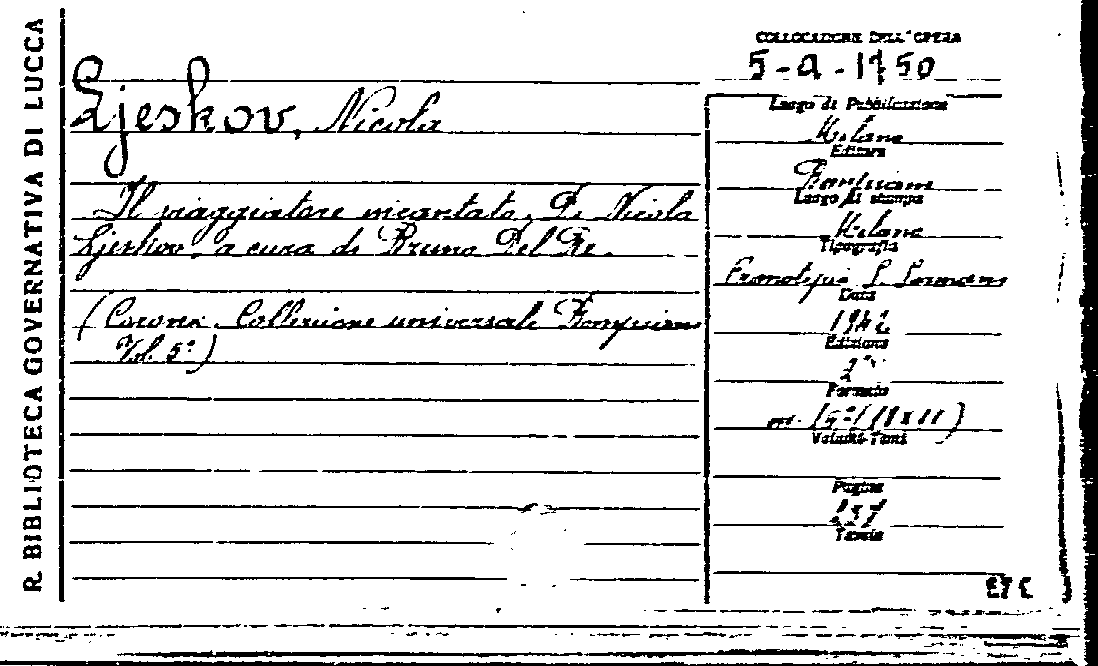 R. BIBLIOTECA GOVERNATIVA DI LUCCA
Ljeskov, Nicola
Il viaggiatore incantato. Di Nicola
Ljeskov, a cura di Bruno Del Re.
(Corona. Collezione universale Bompiani
Vol. 5°)
COLLOCAZIONE DELL'OPERA
5-a-1750
Luogo di Pubblicazione
Milano
Editore
Bompiani
Luogo di stampa
Milano
Tipografia
Data
1942
Edizione
2ª
Formato
Volumi-Tomi
Pagine
237
Tavole